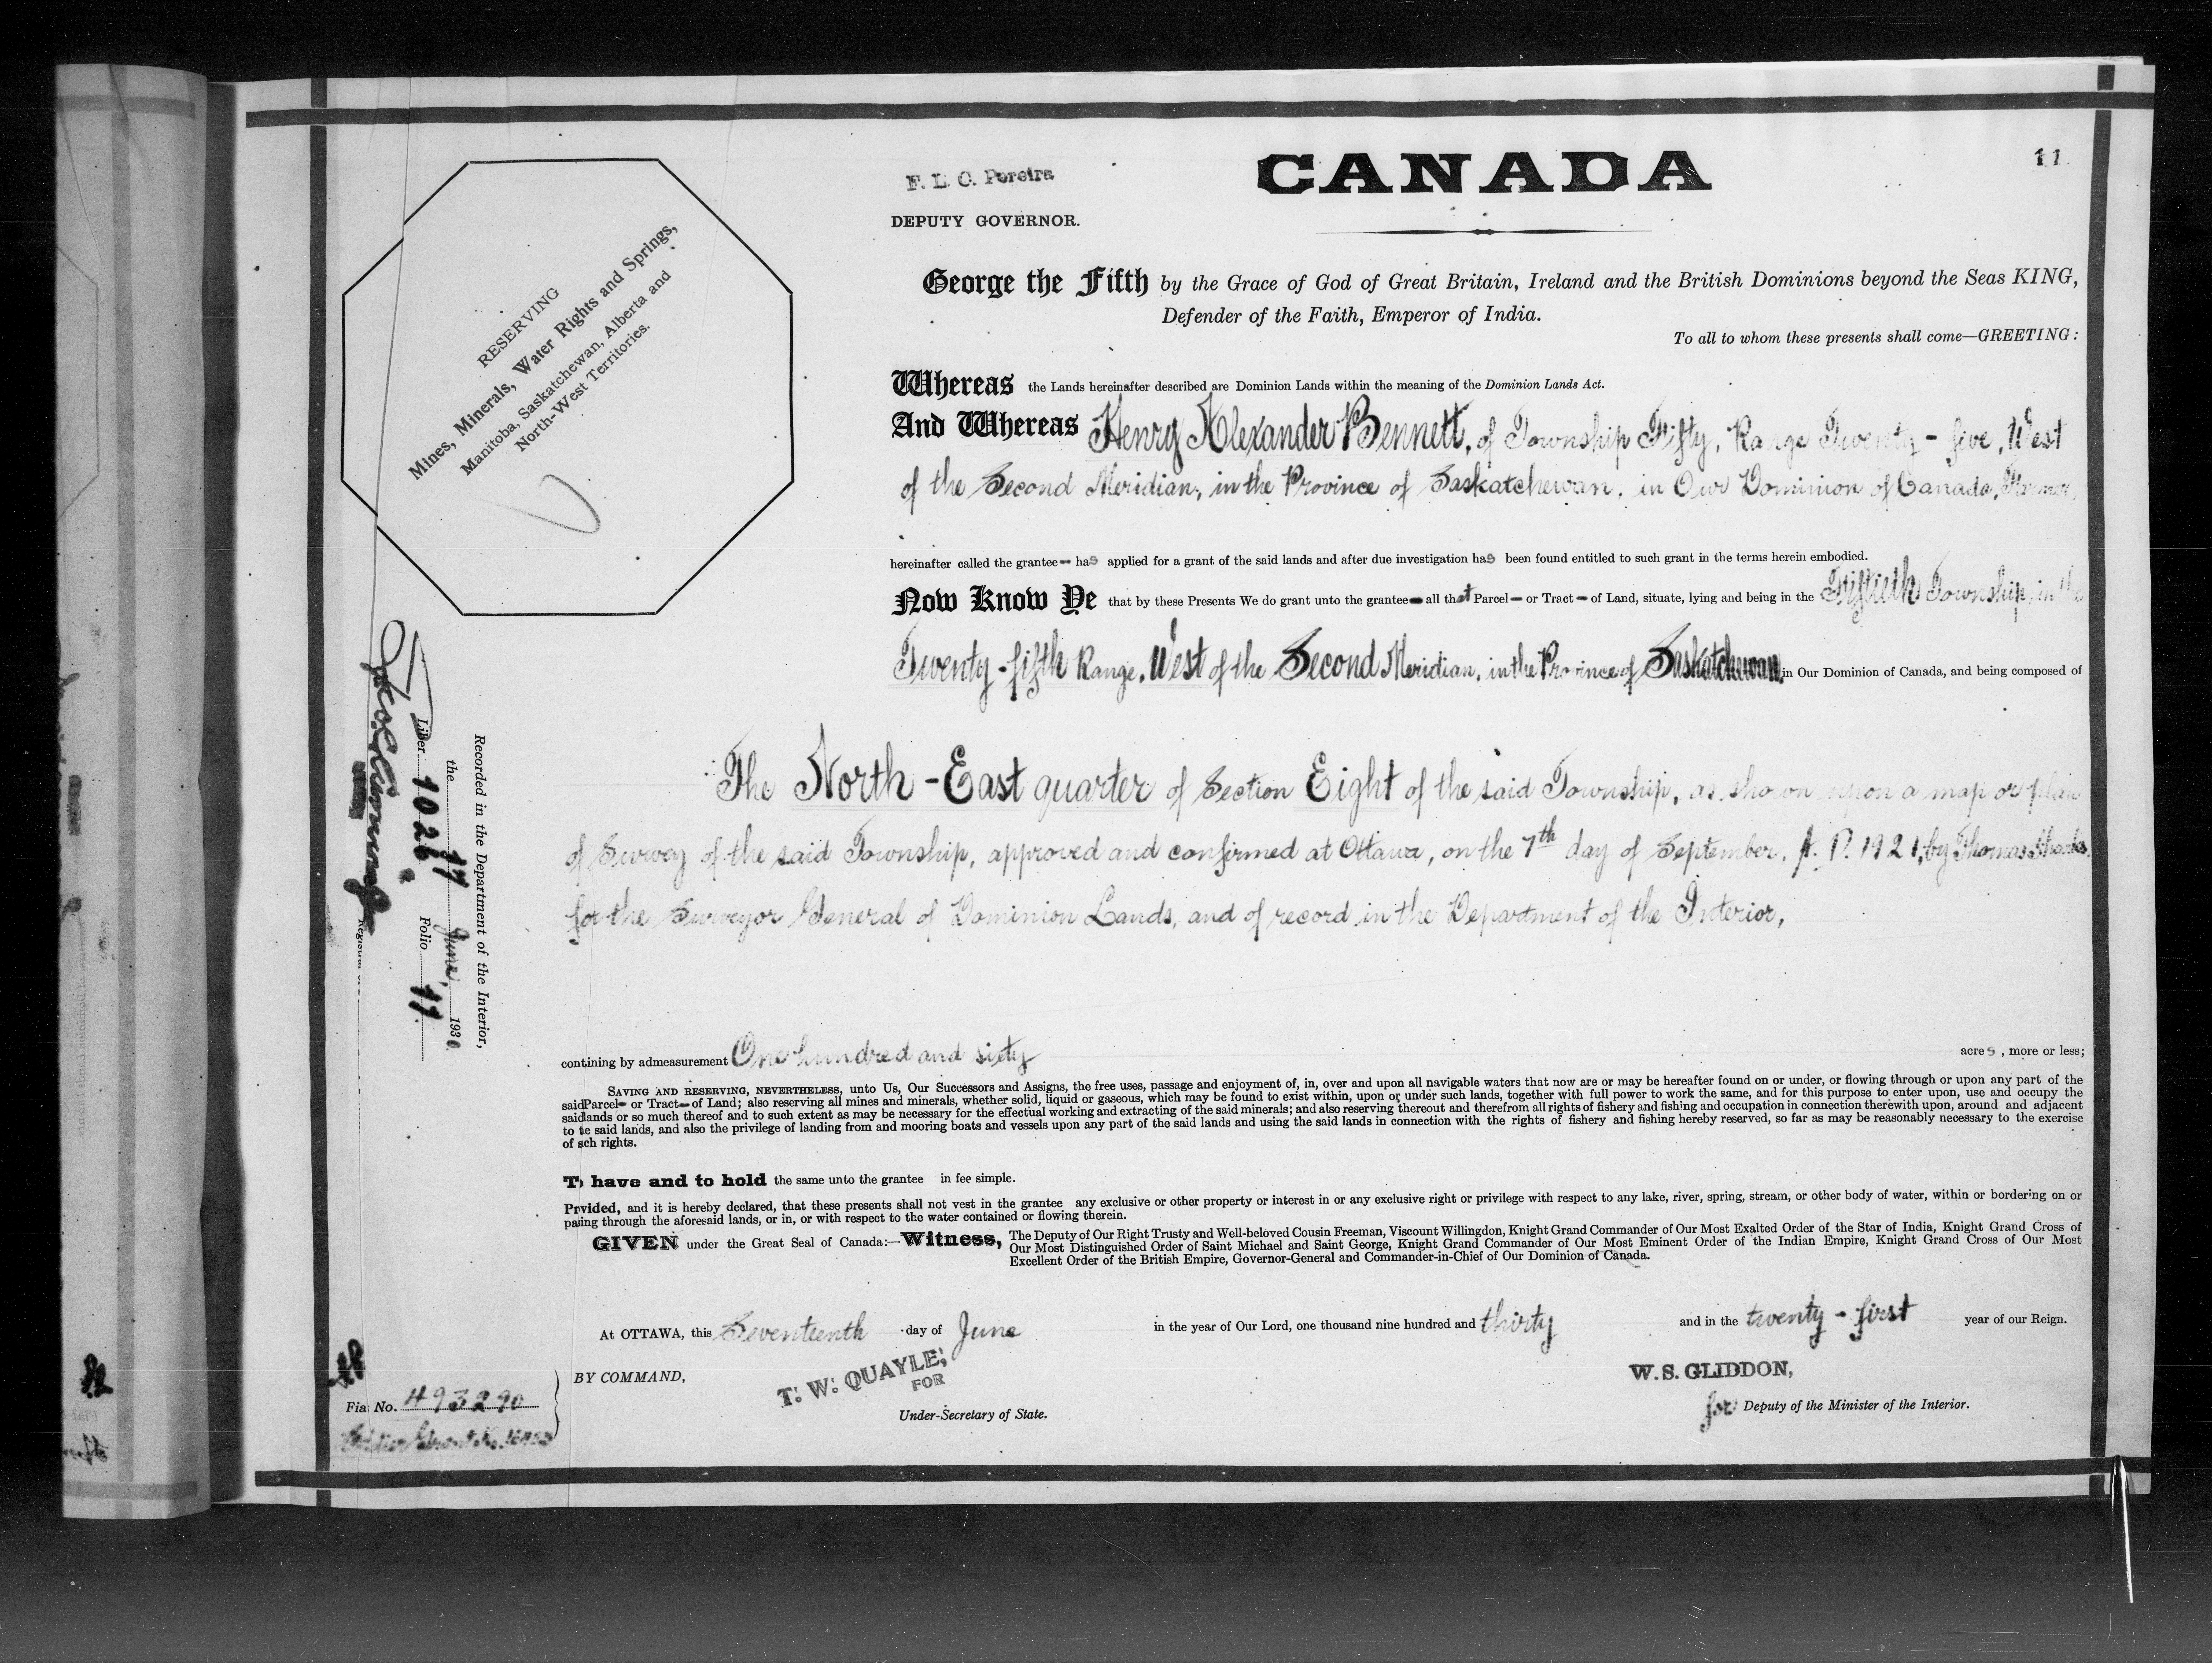 11
CANADA
F. L. C. Pereira
DEPUTY GOVERNOR.
RESERVING
Mines, Minerals, Water Rights and Springs,
Manitoba, Saskatchewan, Alberta and
North-West Territories.
George the Fifth by the Grace of God of Great Britain, Ireland and the British Dominions beyond the Seas KING,
Defender of the Faith, Emperor of India.
To all to whom these presents shall come—GREETING:
Whereas the Lands hereinafter described are Dominion Lands within the meaning of the Dominion Lands Act.
And Whereas Henry Alexander Bennett, of Township Fifty, Range Twenty-five, West
of the Second Meridian, in the Province of Saskatchewan, in Our Dominion of Canada, Farmer,
hereinafter called the grantee has applied for a grant of the said lands and after due investigation has been found entitled to such grant in the terms herein embodied.
Now Know Ye that by these Presents We do grant unto the grantee all that Parcel or Tract of Land, situate, lying and being in the Fiftieth Township, in the
Twenty-fifth Range, West of the Second Meridian, in the Province of Saskatchewan, in Our Dominion of Canada, and being composed of
The North-East quarter of Section Eight of the said Township, as shown upon a map or plan
of Survey of the said Township, approved and confirmed at Ottawa, on the 7th day of September, A. D. 1921, by Thomas Shanks,
for the Surveyor General of Dominion Lands, and of record in the Department of the Interior,
contining by admeasurement One hundred and sixty acres, more or less;
SAVING AND RESERVING, NEVERTHELESS, unto Us, Our Successors and Assigns, the free uses, passage and enjoyment of, in, over and upon all navigable waters that now are or may be hereafter found on or under, or flowing through or upon any part of the
said Parcel or Tract of Land; also reserving all mines and minerals, whether solid, liquid or gaseous, which may be found to exist within, upon or under such lands, together with full power to work the same, and for this purpose to enter upon, use and occupy the
said lands or so much thereof and to such extent as may be necessary for the effectual working and extracting of the said minerals; and also reserving thereout and therefrom all rights of fishery and fishing and occupation in connection therewith upon, around and adjacent
to te said lands, and also the privilege of landing from and mooring boats and vessels upon any part of the said lands and using the said lands in connection with the rights of fishery and fishing hereby reserved, so far as may be reasonably necessary to the exercise
of sch rights.
To have and to hold the same unto the grantee in fee simple.
Prvided, and it is hereby declared, that these presents shall not vest in the grantee any exclusive or other property or interest in or any exclusive right or privilege with respect to any lake, river, spring, stream, or other body of water, within or bordering on or
pasing through the aforesaid lands, or in, or with respect to the water contained or flowing therein.
GIVEN under the Great Seal of Canada:—Witness, The Deputy of Our Right Trusty and Well-beloved Cousin Freeman, Viscount Willingdon, Knight Grand Commander of Our Most Exalted Order of the Star of India, Knight Grand Cross of
Our Most Distinguished Order of Saint Michael and Saint George, Knight Grand Commander of Our Most Eminent Order of the Indian Empire, Knight Grand Cross of Our Most
Excellent Order of the British Empire, Governor-General and Commander-in-Chief of Our Dominion of Canada.
At OTTAWA, this Seventeenth day of June in the year of Our Lord, one thousand nine hundred and thirty and in the twenty-first year of our Reign.
BY COMMAND,
T. W. QUAYLE,
FOR
Under-Secretary of State.
W. S. GLIDDON,
for Deputy of the Minister of the Interior.
Recorded in the Department of the Interior,
the 17 June, 1930.
Liber 1026 Folio 11.
Fiat No. 493290
Soldier Grant No.